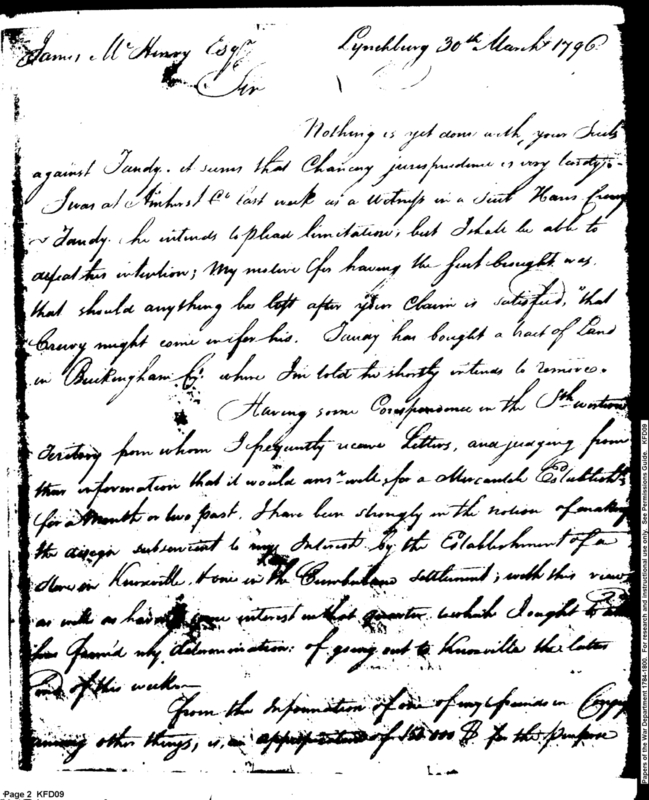 James McHenry Esqr Lynchburg 30th March 1796
Sir
Nothing is yet done with your Suit
against Tandy. it seems that Chancery jurisprudence is very tardy.
I was at Amherst Co last week as a Witness in a Suit Haws Crewy
v Tandy. he intends to plead limitation, but I shall be able to
defeat his intention; My motive for having the suit brought was
that should anything be left after your Claim is satisfied, that
Crewy might come in for his. Tandy has bought a tract of Land
in Buckingham Co. where I'm told he shortly intends to remove.
Having some Corespondence in the Sth western
Territory from whom I frequently receive Letters, and judging from
their information that it would ansr well, for a Mercantile Establisht
for a Month or two past. I have been strongly in the notion of making
the design subservient to my Interest by the Establishment of a
Store in Knoxville, & one in the Cumberland Settlement; with this view
as well as having some interest in that quarter which I ought to
has form'd my determination: of going out to Knoxville the later
end of this week
From the Information of one of my friends in
among other things, is, an appropriation of 150 000 $ for the purpose
Page 2 KFD09
Papers of the War Department 1784-1800. For research and instructional use only. See Permissions Guide. KFD09